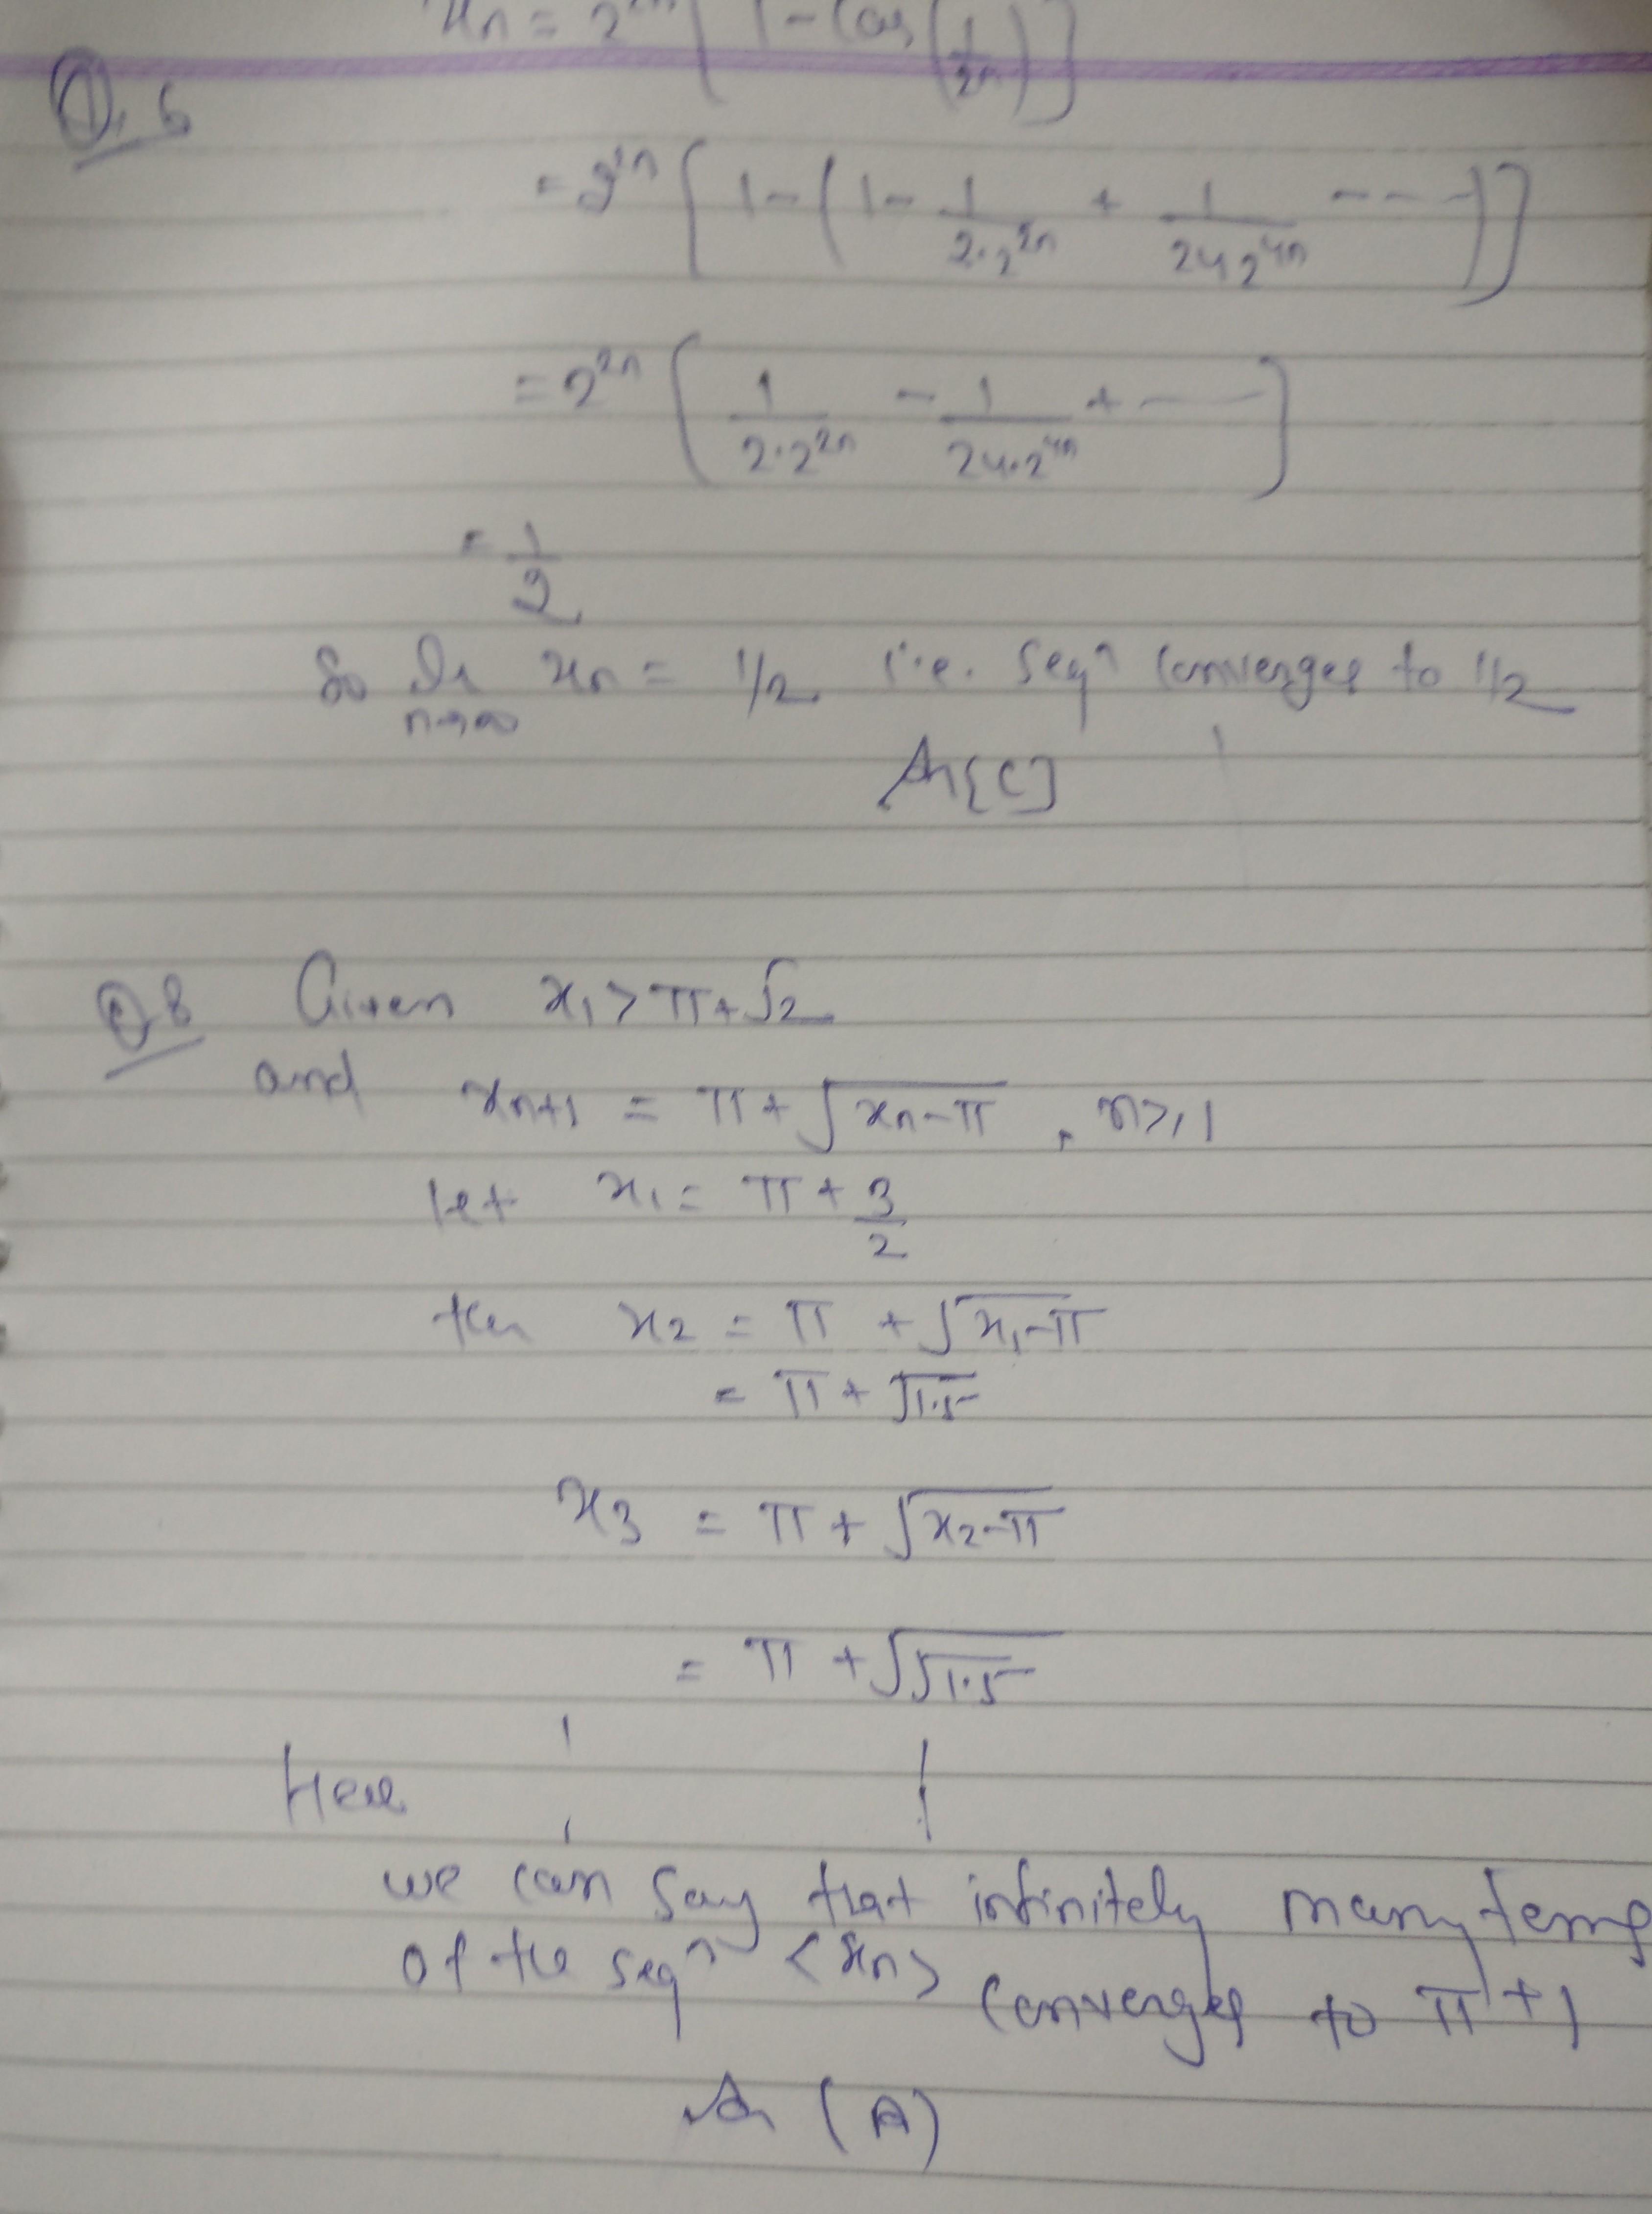 xn = 2^2n [1 - Cos(1/2^n)]
Q.6
= 2^2n [1 - (1 - 1/2·2^2n + 1/24 2^4n ----)]
= 2^2n [1/2·2^2n - 1/24·2^4n + ---]
= 1/2
So lt n→∞ xn = 1/2 i.e. Seqn Converges to 1/2
An [C]
Q.8 Given x1 > π + √2
and xn+1 = π + √(xn - π) , n ≥ 1
let x1 = π + 3/2
then x2 = π + √(x1 - π)
= π + √1.5
x3 = π + √(x2 - π)
= π + √√1.5
Here
we can say that infinitely many terms
of the seqn <xn> Converges to π + 1
An (A)